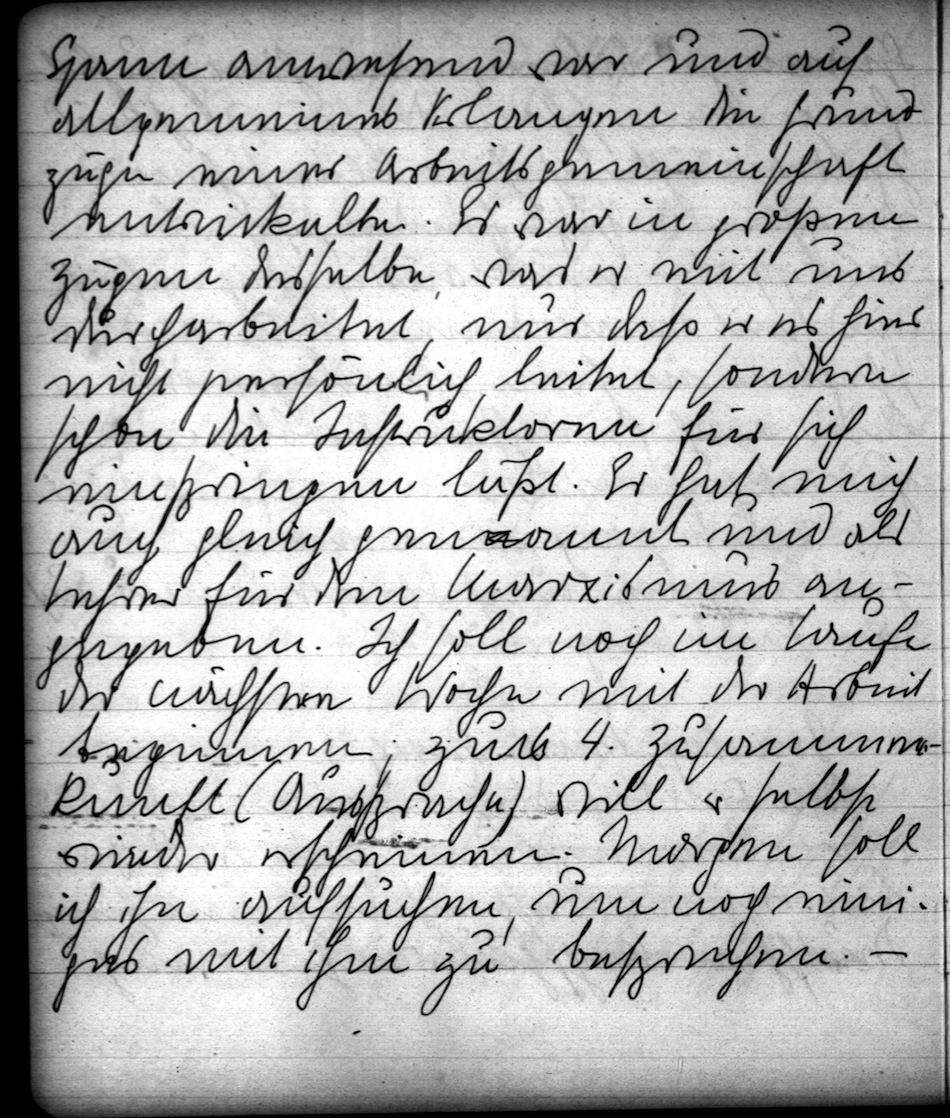 Spann anwesend war und auf
allgemeines Verlangen die Grund-
züge einer Arbeitsgemeinschaft
entwickelte. Es war in großen
Zügen dasselbe, was er mit uns
durcharbeitet, nur daß er es hier
nicht persönlich leitet, sondern
schon die Instruktoren für sich
einspringen läßt. Er hat mich
auch gleich genannt und als
Lehrer für den Marxismus an-
gegeben. Ich soll noch im Laufe
der nächsten Woche mit der Arbeit
beginnen, zur 4. Zusammen-
kunft (Aussprache) will er selbst
wieder erscheinen. Morgen soll
ich ihn aufsuchen, um noch eini-
ges mit ihm zu besprechen. —